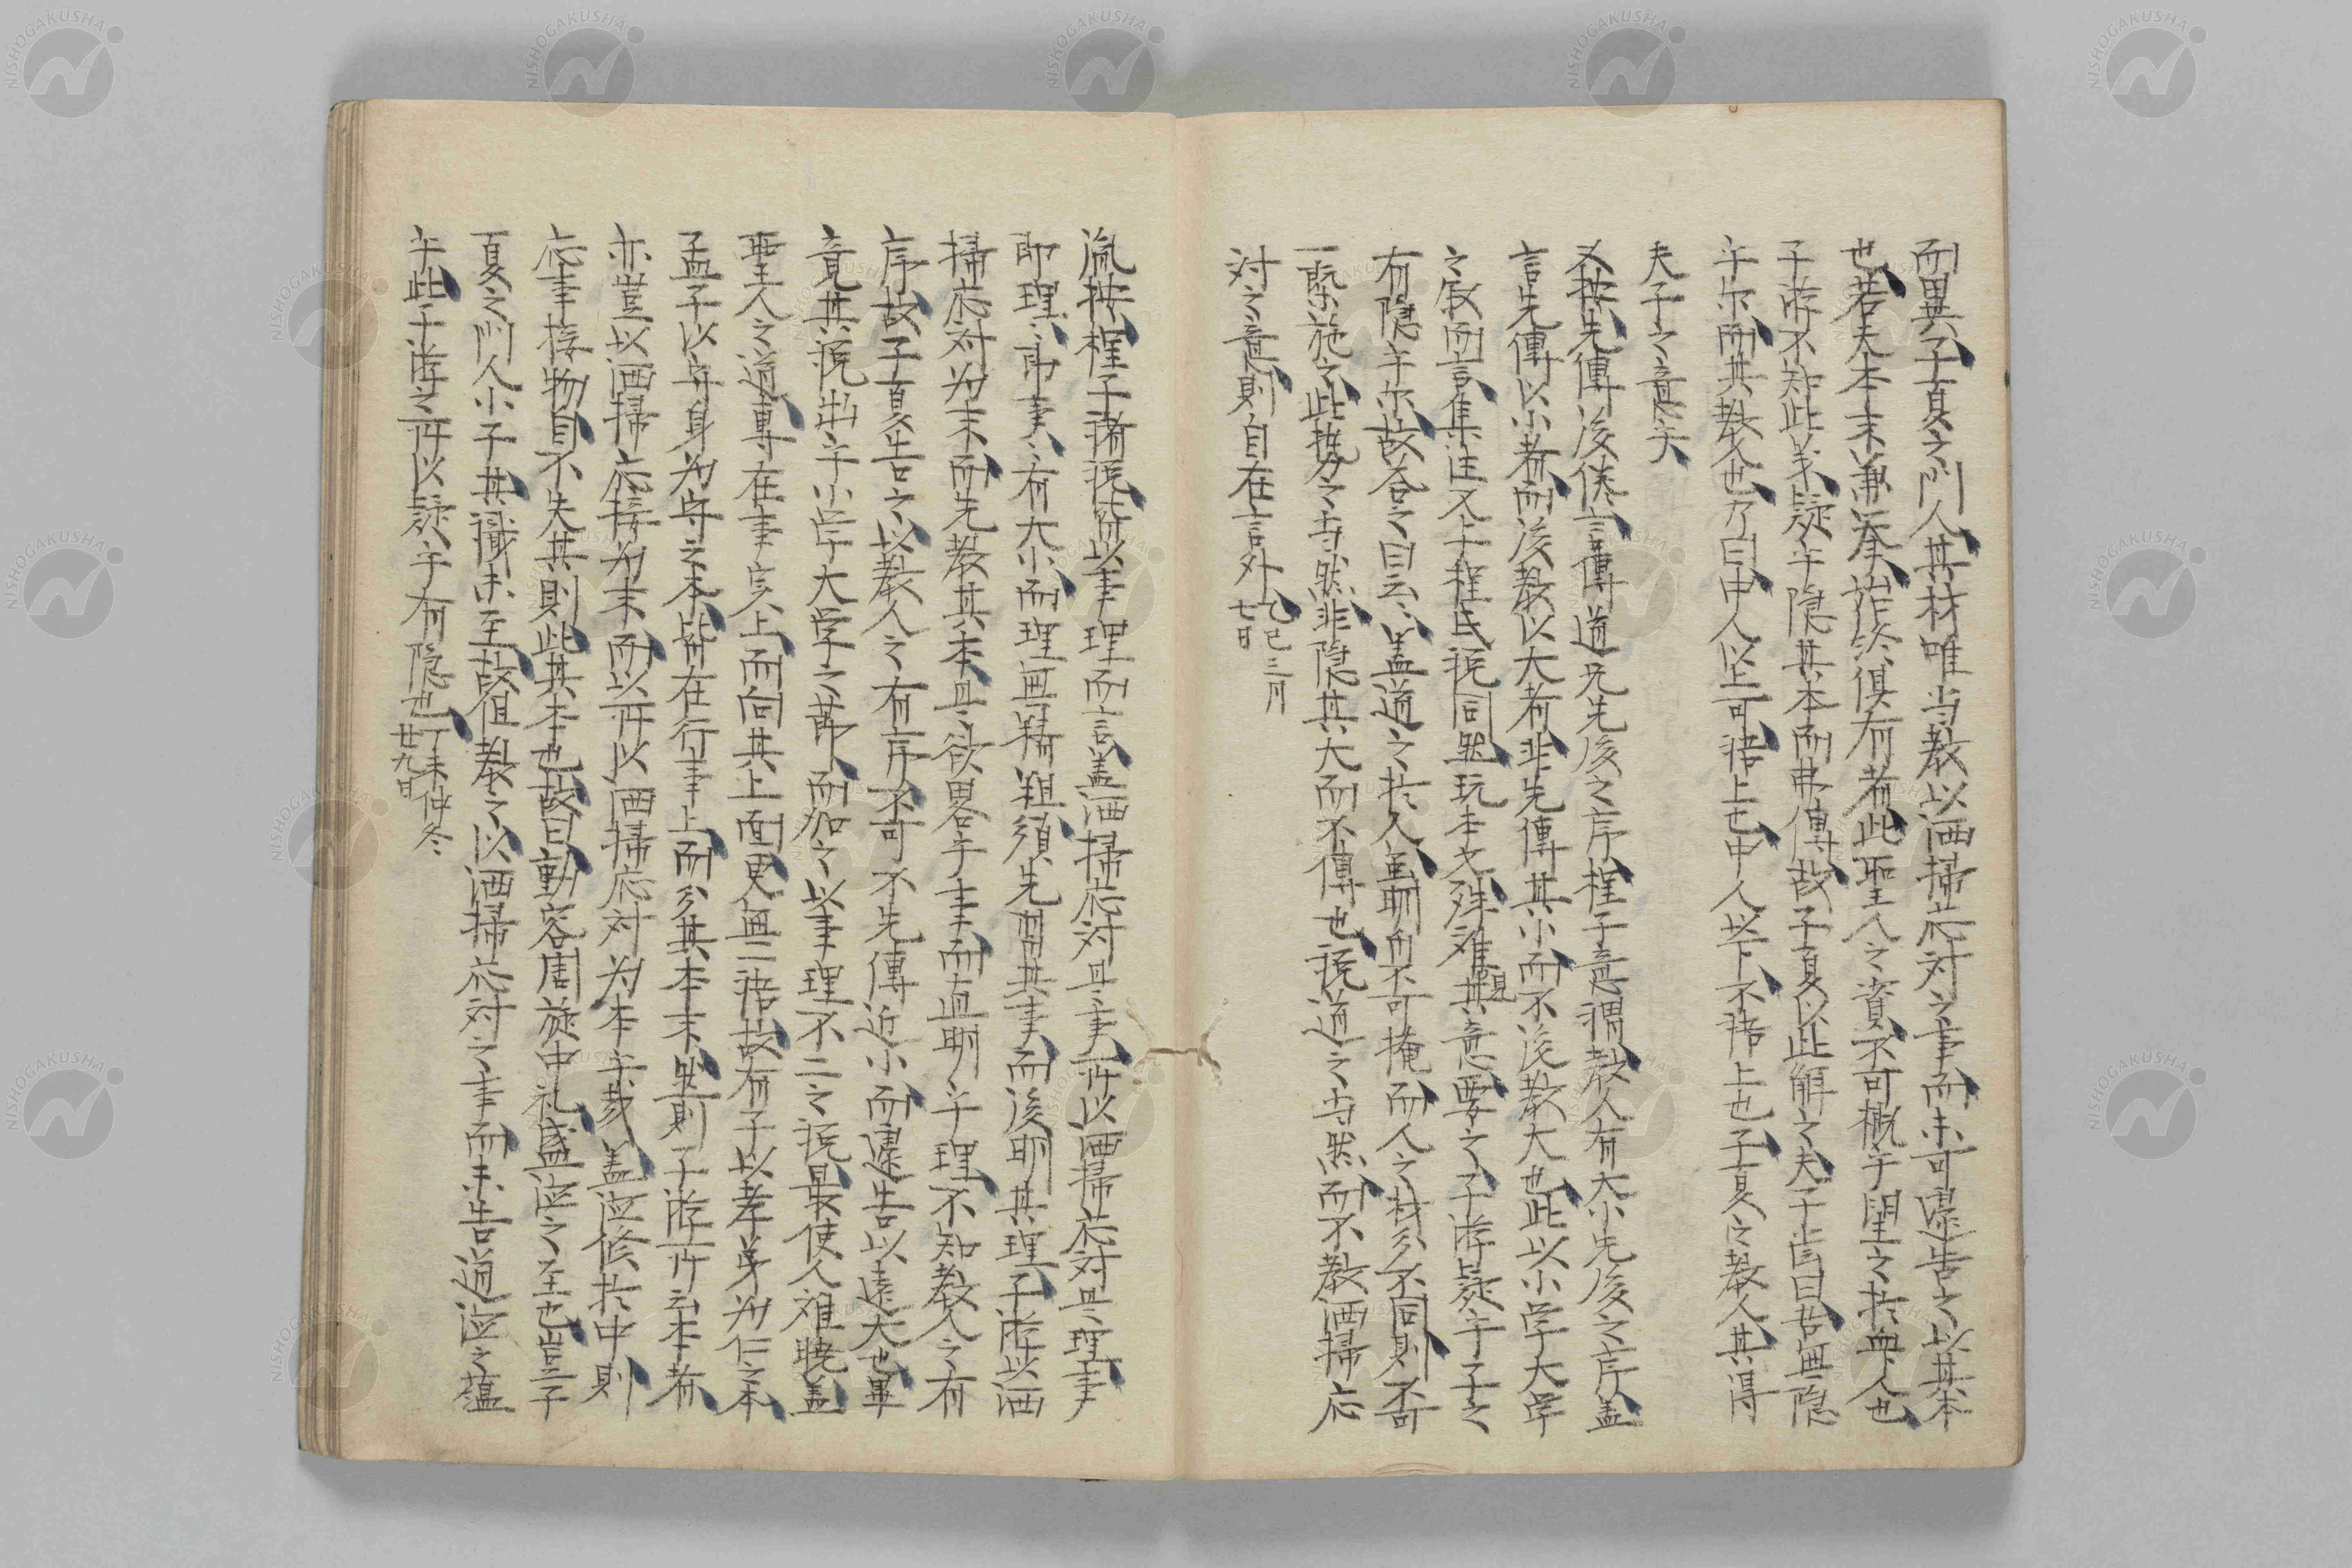 而異子夏之門人其材唯当教以洒掃応対之事而未可遽告之以其本
也若夫本末兼挙始終俱有者此聖人之資不可概于望之於衆人也
子游不知此義疑乎隠其本而弗傳故子夏以此解之夫子嘗曰吾無隠
乎尓而其教人也乃曰中人以上可語上也中人以下不語上也子夏之教人其得
夫子之意矣
又按先傳後倦言傳道之先後之序程子意謂教人有大小先後之序蓋
言先傳以小者而後教以大者非先傳其小而不後教大也此以小学大学
之叙而言集注又与程氏説同然玩本文殊难見其意要之子游疑乎子之
有隠乎尓故答之曰云〻蓋道之於人至明白不可掩而人之材分不同則不可
一槩施之此勢之当然非隠其大而不傳也説道之当然而不教洒掃応
対之意則自在言外 乙巳三月
七日
胤按程子諸説皆以事理而言蓋洒掃応対是事所以洒掃応対是理事
即理〻即事〻有大小而理無精粗須先習其事而後明其理子游以洒
掃応対为末而先教其本是欲畧乎事而直明乎理不知教人之有
序故子夏告之以教人之有序不可不先傳近小而遽告以遠大也畢
竟其説出乎小学大学之節而加之以事理不二之説最使人难曉蓋
聖人之道專在事実上而向其上面更無二語故有子以孝弟为仁之本
孟子以守身为守之本皆在行事上而分其本末然則子游所云本者
亦豈以洒掃応接为末而以所以洒掃応対为本乎哉蓋涖修於中則
応事接物自不失其則此其本也故曰動容周旋中礼盛徳之至也豈子
夏之門人小子其識未至故徂教之以洒掃応対之事而未告道徳之蘊
乎此子游之所以疑乎有隠也 丁未仲冬
廿九日